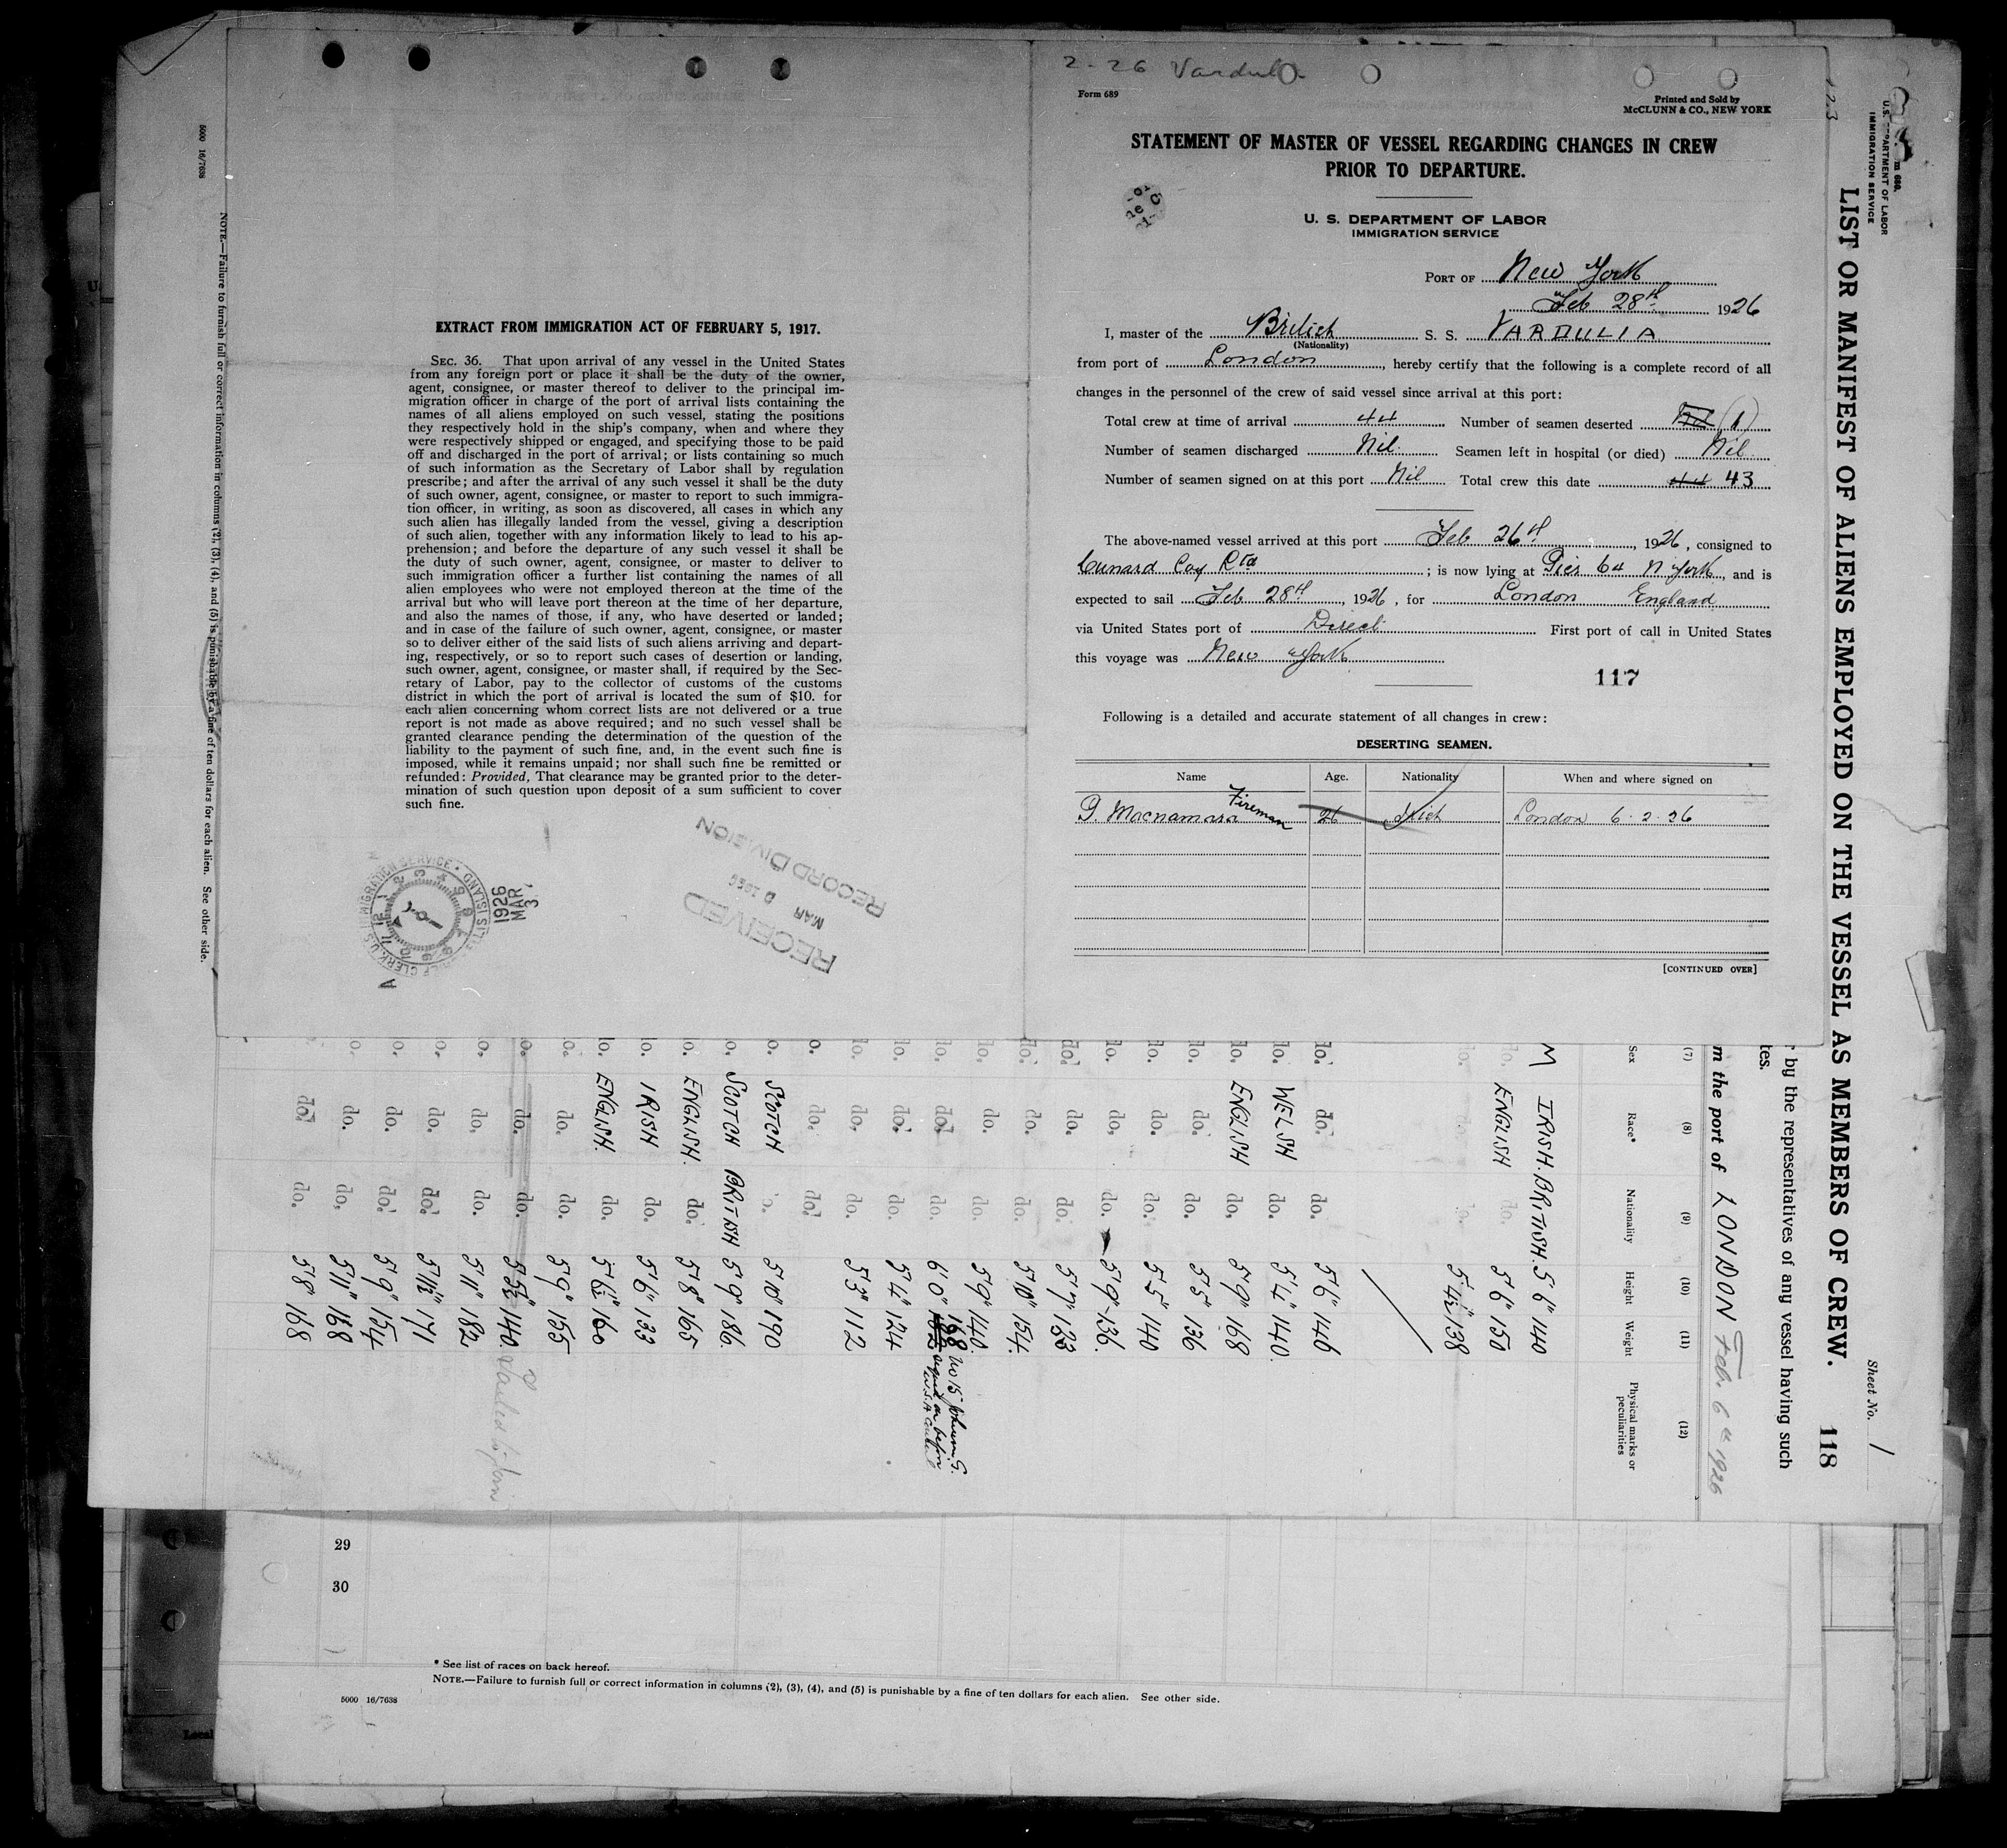 2-26 Vardulia
Form 689
Printed and Sold by
McCLUNN & CO., NEW YORK
STATEMENT OF MASTER OF VESSEL REGARDING CHANGES IN CREW
PRIOR TO DEPARTURE.
U. S. DEPARTMENT OF LABOR
IMMIGRATION SERVICE
PORT OF New York
Feb 28th 1926
I, master of the British S. S. VARDULIA
(Nationality)
from port of London, hereby certify that the following is a complete record of all
changes in the personnel of the crew of said vessel since arrival at this port:
Total crew at time of arrival 44 Number of seamen deserted Nil (1)
Number of seamen discharged Nil. Seamen left in hospital (or died) Nil.
Number of seamen signed on at this port Nil Total crew this date 44 43
The above-named vessel arrived at this port Feb 26th, 1926, consigned to
Cunard Coy Ltd; is now lying at Pier 64 N York, and is
expected to sail Feb 28th, 1926, for London England
via United States port of Direct First port of call in United States
this voyage was New York
117
Following is a detailed and accurate statement of all changes in crew:
DESERTING SEAMEN.
Name Age. Nationality When and where signed on
Macnamara Fireman 26 Irish London 6-2-26
[CONTINUED OVER]
EXTRACT FROM IMMIGRATION ACT OF FEBRUARY 5, 1917.
SEC. 36. That upon arrival of any vessel in the United States
from any foreign port or place it shall be the duty of the owner,
agent, consignee, or master thereof to deliver to the principal im-
migration officer in charge of the port of arrival lists containing the
names of all aliens employed on such vessel, stating the positions
they respectively hold in the ship's company, when and where they
were respectively shipped or engaged, and specifying those to be paid
off and discharged in the port of arrival; or lists containing so much
of such information as the Secretary of Labor shall by regulation
prescribe; and after the arrival of any such vessel it shall be the duty
of such owner, agent, consignee, or master to report to such immigra-
tion officer, in writing, as soon as discovered, all cases in which any
such alien has illegally landed from the vessel, giving a description
of such alien, together with any information likely to lead to his ap-
prehension; and before the departure of any such vessel it shall be
the duty of such owner, agent, consignee, or master to deliver to
such immigration officer a further list containing the names of all
alien employees who were not employed thereon at the time of the
arrival but who will leave port thereon at the time of her departure,
and also the names of those, if any, who have deserted or landed;
and in case of the failure of such owner, agent, consignee, or master
so to deliver either of the said lists of such aliens arriving and depart-
ing, respectively, or so to report such cases of desertion or landing,
such owner, agent, consignee, or master shall, if required by the Sec-
retary of Labor, pay to the collector of customs of the customs
district in which the port of arrival is located the sum of $10. for
each alien concerning whom correct lists are not delivered or a true
report is not made as above required; and no such vessel shall be
granted clearance pending the determination of the question of the
liability to the payment of such fine, and, in the event such fine is
imposed, while it remains unpaid; nor shall such fine be remitted or
refunded: Provided, That clearance may be granted prior to the deter-
mination of such question upon deposit of a sum sufficient to cover
such fine.
RECEIVED
MAR
RECORD DIVISION
1926
MAR
3
Sheet No. 1
U.S. DEPARTMENT OF LABOR
IMMIGRATION SERVICE
LIST OR MANIFEST OF ALIENS EMPLOYED ON THE VESSEL AS MEMBERS OF CREW. 118
by the representatives of any vessel having such
tes.
m the port of LONDON Feb. 6th 1926
(7) (8) (9) (10) (11) (12)
Sex Race* Nationality Height Weight Physical marks or
peculiarities
M IRISH. BRITISH. 5 6" 140
ENGLISH do. 5 6" 150
5 4½" 138
do. do. do. 5 6" 146
do. WELSH do. 5 4" 140.
do. ENGLISH do. 5 9" 168
do. do. do. 5 5" 136
do. do. do. 5 5" 140
do. do. do. 5 9" 136.
do. do. do. 5 7" 133
do. do. do. 5 10" 154.
do. do. do. 5 9" 140.
do. do. do. 6 0" 168
do. do. do. 5 4" 124
do. do. do. 5 3" 112
o. do. do.
o. SCOTCH 5 10" 190
o. SCOTCH BRITISH 5 9" 186.
o. ENGLISH. do. 5 8" 165
lo. IRISH do. 5 6" 133
lo. ENGLISH. do. 5 6½" 160
o. do. do. 5 9" 155
o. do. do. 5 5½" 140.
o. do. do. 5 11" 182
o. do. do. 5 11½" 171
o. do. do. 5 9" 154
o. do. do. 5 11" 168
do. do. 5 8" 168
NOTE.—Failure to furnish full or correct information in columns (2), (3), (4), and (5) is punishable by a fine of ten dollars for each alien. See other side.
5000 16/7638
29
30
* See list of races on back hereof.
NOTE.—Failure to furnish full or correct information in columns (2), (3), (4), and (5) is punishable by a fine of ten dollars for each alien. See other side.
5000 16/7638